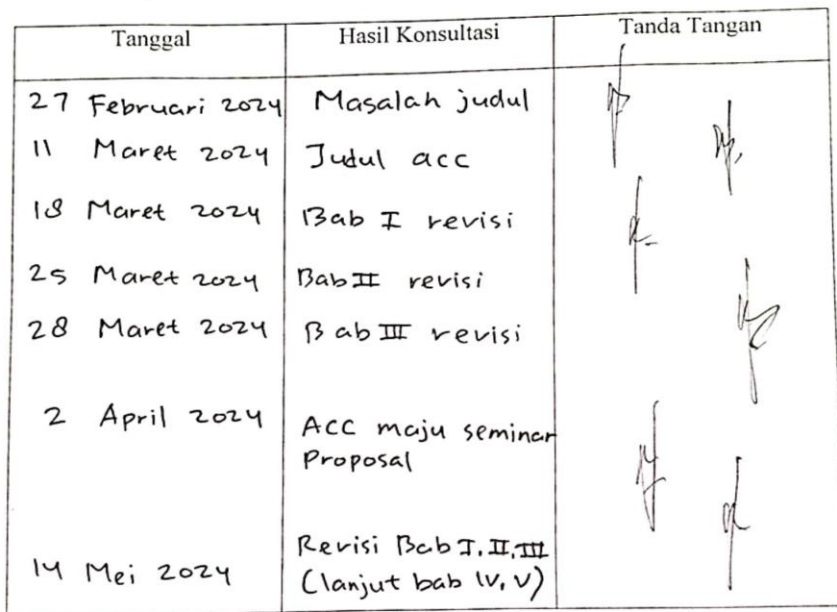 Tanggal Hasil Konsultasi Tanda Tangan
27 Februari 2024 Masalah judul
11 Maret 2024 Judul acc
18 Maret 2024 Bab I revisi
25 Maret 2024 Bab II revisi
28 Maret 2024 Bab III revisi
2 April 2024 ACC maju seminar
Proposal
Revisi Bab I, II, III
14 Mei 2024 (lanjut bab IV, V)